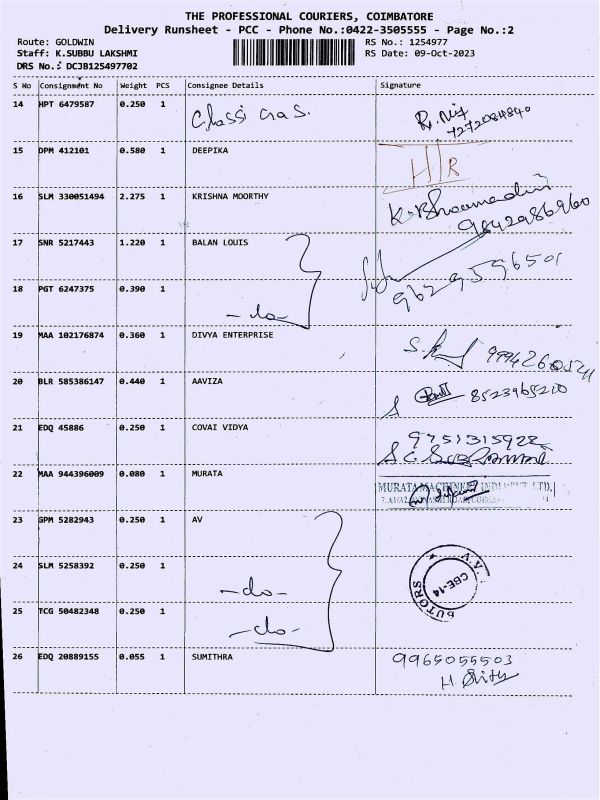 THE PROFESSIONAL COURIERS, COIMBATORE
Delivery Runsheet - PCC - Phone No.:0422-3505555 - Page No.:2
Route: GOLDWIN RS No.: 1254977
Staff: K.SUBBU LAKSHMI RS Date: 09-Oct-2023
DRS No.: DCJB125497702
S No Consignment No Weight PCS Consignee Details Signature
14 HPT 6479587 0.250 1 Classi Gas.
7272084840
15 DPM 412101 0.580 1 DEEPIKA HR
16 SLM 330051494 2.275 1 KRISHNA MOORTHY
9842986960
17 SNR 5217443 1.220 1 BALAN LOUIS
9629596501
18 PGT 6247375 0.390 1 -do-
19 MAA 102176874 0.360 1 DIVYA ENTERPRISE
20 BLR 585386147 0.440 1 AAVIZA 8523965210
21 EDQ 45886 0.250 1 COVAI VIDYA 9751315922
22 MAA 944396009 0.080 1 MURATA MURATA MACHINERY INDIA PVT. LTD,
23 GPM 5282943 0.250 1 AV
24 SLM 5258392 0.250 1 -do- CBE-14
25 TCG 50482348 0.250 1 -do-
26 EDQ 20889155 0.055 1 SUMITHRA 9965055503